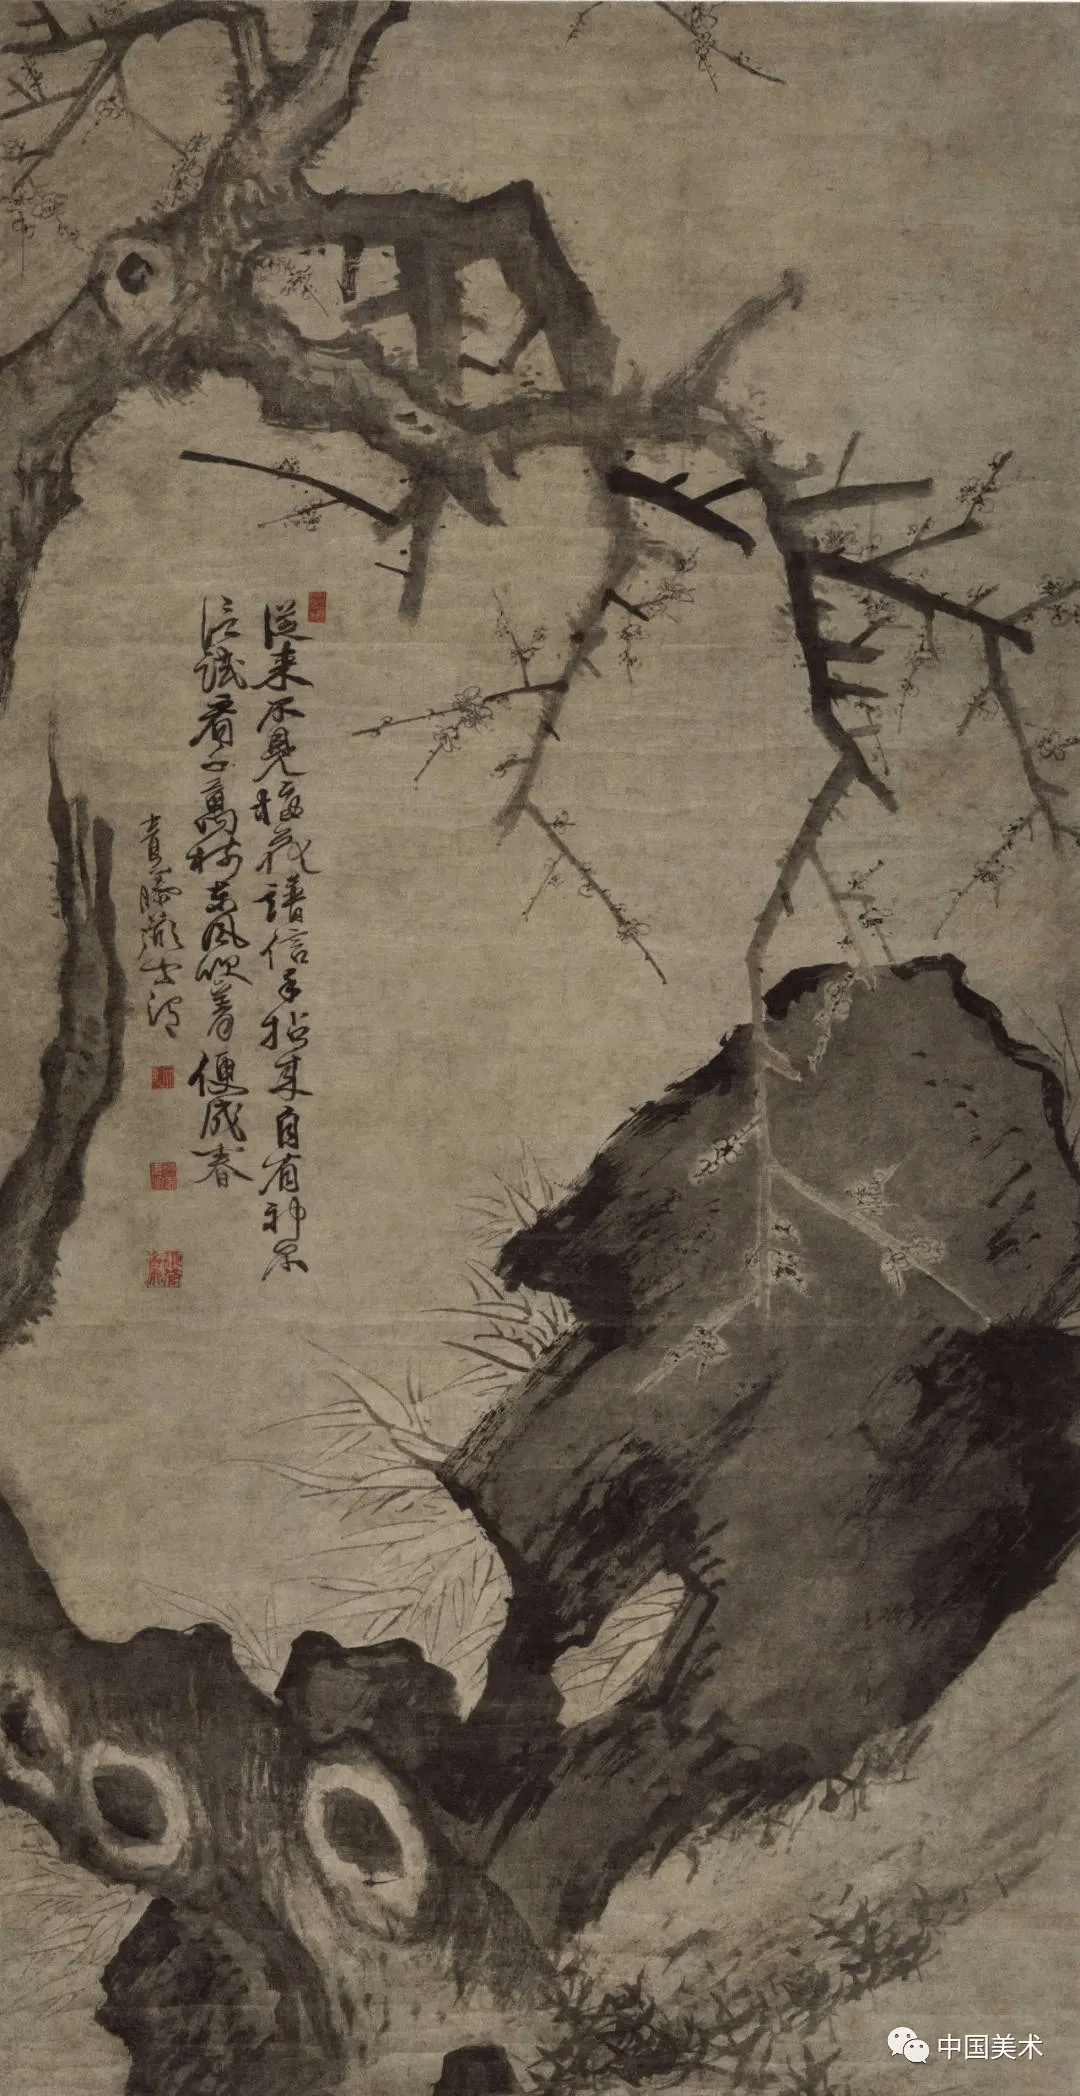 從来不見梅花譜信手拈来自有神不
信試看千萬樹東風吹着便成春
青藤道士渭
中国美术